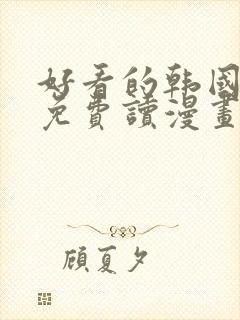 好看的韩國
免費讀漫畫
顾夏夕